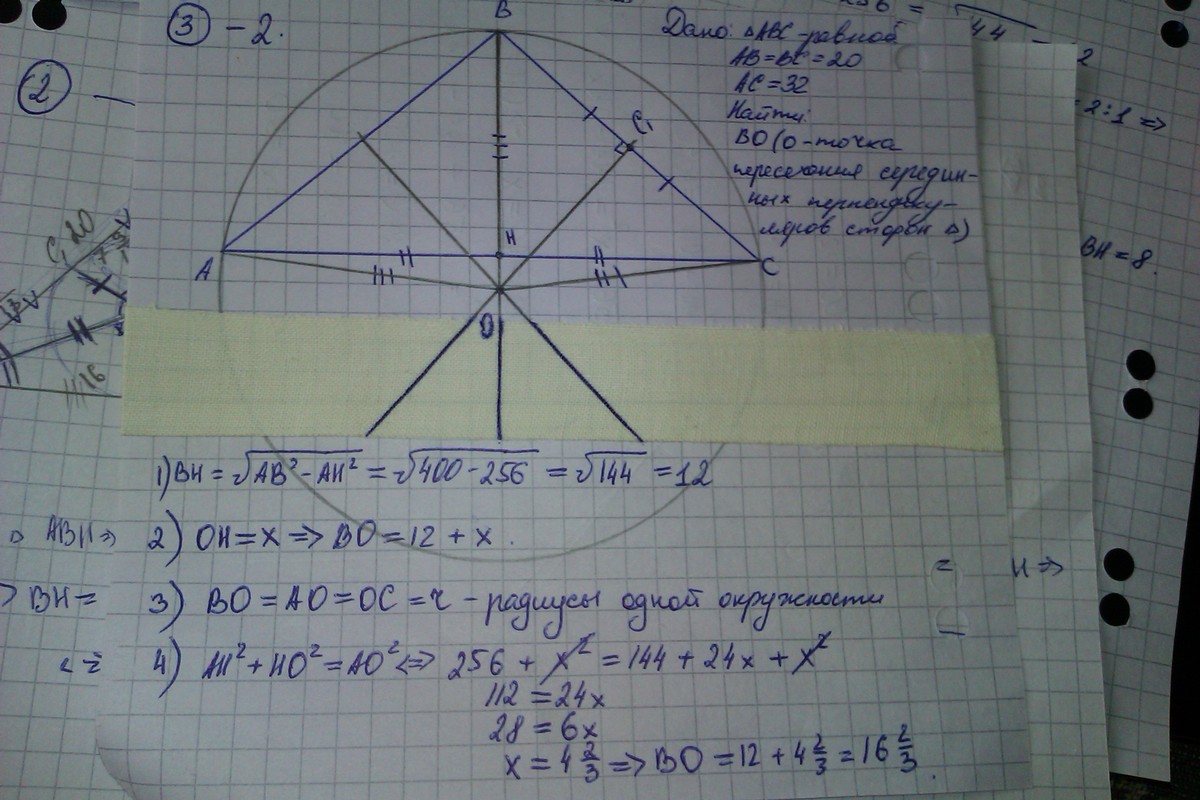 ③ - 2.
B
Дано: △ABC-равноб
AB=BC=20
AC=32
Найти:
BO (O-точка
пересечения середин-
ных перпендику-
ляров сторон △)
C₁
H
A
C
O
1) BH = √(AB² - AH²) = √(400 - 256) = √144 = 12
2) OH = x => BO = 12 + x.
3) BO = AO = OC = r - радиусы одной окружности
4) AH² + HO² = AO² <=> 256 + x² = 144 + 24x + x²
112 = 24x
28 = 6x
x = 4 2/3 => BO = 12 + 4 2/3 = 16 2/3.
②
C₁ 20
16
ABH =>
BH =
256 =
44
2
2:1 =>
BH = 8.
=
H =>